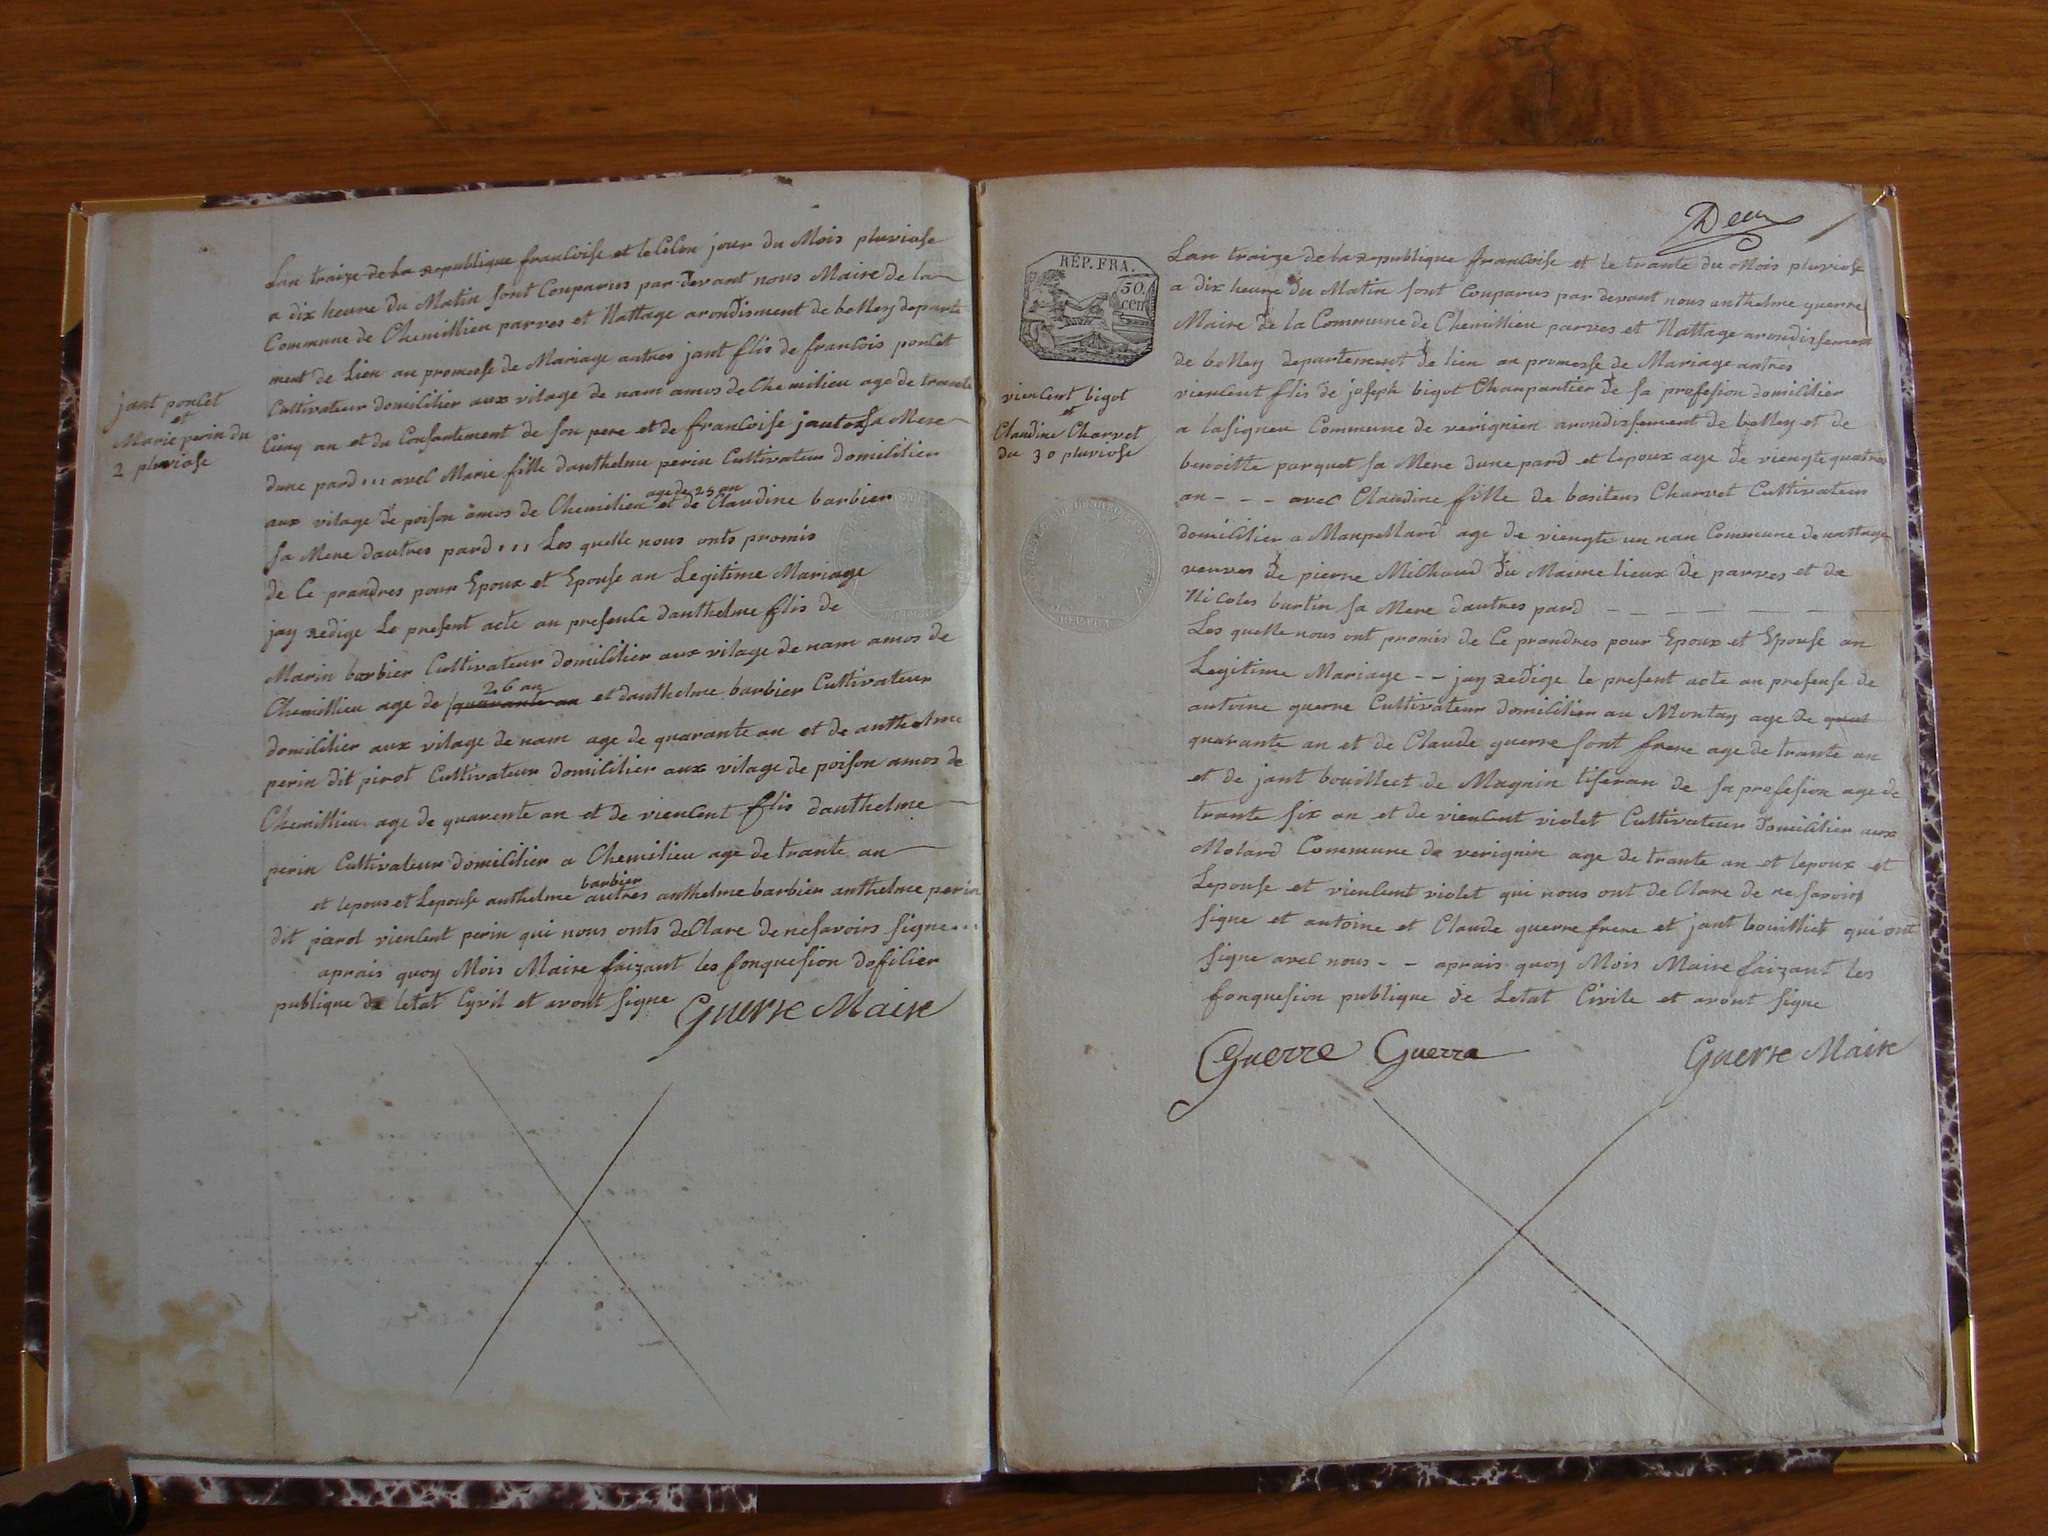 jant poncet
et
Marie perin du
2 pluviose
Lan traize de la republique francoise et le Celon jour du Mois pluviose
a dix heure du Matin sont Conparus par devant nous Maire de la
Commune de Chemillieu parves et Nattage arondisment de belley departe
ment de Lien au promesse de Mariage antres jant flis de francois poncet
Cultivateur domilitier aux vilage de nam amos de Chemilieu age de trante
Cinq an et du Consantement de son pere et de francoise jautos sa Mere
dune pard ,,, avel Marie fille danthelme perin Cultivateur domilitier
aux vilage de poison amos de Chemilieu age de 25 an et de Claudine barbier
sa Mere dautres pard ,,, Les quelle nous onts promis
de Ce prandres pour Epoux et Epouse an Legitime Mariage
jay redige Le present acte an presence danthelme flis de
Marin barbier Cultivateur domilitier aux vilage de nam amos de
Chemillieu age de quarante an 26 an et danthelme barbier Cultivateur
domilitier aux vilage de nam age de quarante an et de anthelme
perin dit pirot Cultivateur domilitier aux vilage de poison amos de
Chemillieu age de quarente an et de vienlent flis danthelme
perin Cultivateur domilitier a Chemilieu age de trante an
et lepous et Lepouse anthelme barbier autres anthelme barbier anthelme perin
dit parol vienlent perin qui nous onts deClare de ne savoirs signe ...
aprais quoy Mois Maire faizant les fonquesion dofilier
publique de letat Cyvil et avont signe Guerre Maire
Deux
RÉP. FRA.
50.
cen
vienlent bigot
et
Claudine Charvet
du 30 pluviose
Lan traize de la republique francoise et le trante du Mois pluviose
a dix heure du Matin sont Conparus par devant nous anthelme guerre
Maire de la Commune de Chemillieu parves et Nattage arondissement
de belley departement de lien an promesse de Mariage antres
vienlent flis de joseph bigot Charpantier de sa profesion domilitier
a lasigneu Commune de verignien arondissement de belley et de
benoitte parquet sa Mere dune pard et lepoux age de viengte quatres
an - - - avec Claudine fille de basitens Charvet Cultivateur
domilitier a Manpellard age de viengte un nan Commune de nattage
veuves de pierre Milhoud du Maime lieux de parves et de
Nicoles burtin sa Mere dautres pard - - - - -
Les quelle nous ont promis de Ce prandres pour Epoux et Epouse an
Legitime Mariage - - jay redige le present acte an presense de
antoine guerre Cultivateur domilitier au Montay age de
quarante an et de Claude guerre sont frere age de trante an
et de jant bouilleet de Magnin tiseran de sa profesion age de
trante six an et de vienlent violet Cultivateur domilitier aux
Molard Commune de verignin age de trante an et lepoux et
Lepouse et vienlent violet qui nous ont de Clare de ne savoirs
signe et antoine et Claude guerre frere et jant bouilliet qui ont
signe avec nous - - aprais quoy Mois Maire faizant les
fonquesion publique de Letat Civile et avont signe
Guerre Guerra Guerre Maire